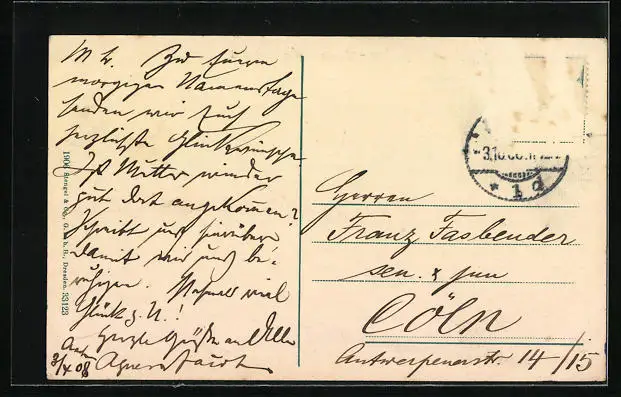 Zu Eurem
morgigen Namenstage
senden wir Euch
herzlichste Glückwünsche.
Ist Mutter wieder
gut dort angekommen?
Schreibt uns hierüber
damit wir uns be-
ruhigen. Nochmals viel
Glück z. N.!
Herzl. Grüße an Alle
3/X 08
1906 Stengel & Co., G. m. b. H., Dresden. 33123
3.10.08
* 1 d
Herren
Franz Fasbender
sen. & jun
Cöln
Antwerpenerstr. 14/15